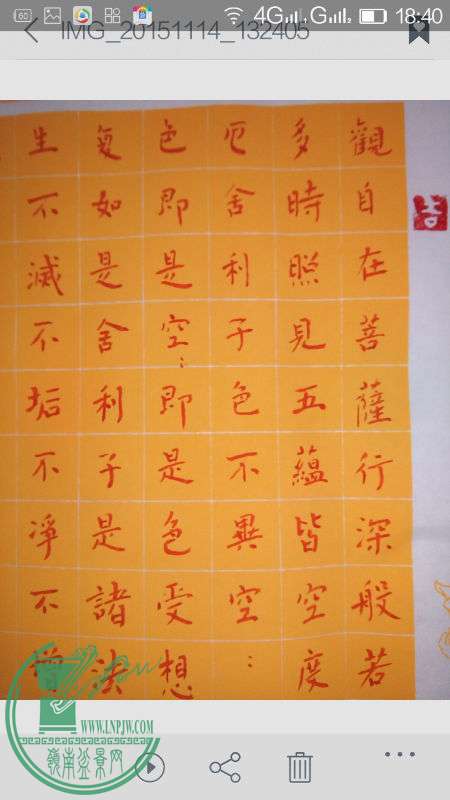 4G G 18:40
IMG_20151114_132405
觀自在菩薩行深般若
多時照見五蘊皆空度
厄舍利子色不異空：
色即是空：即是色受想
复如是舍利子是諸法
生不滅不垢不淨不
WWW.LNPJW.COM
嶺南盆景网